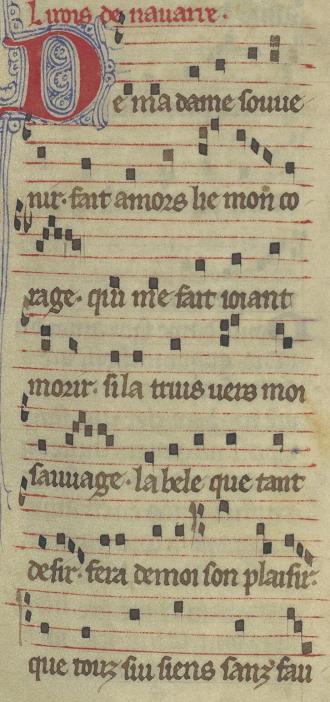 Li rois de nauarre.
De ma dame souue
nir. fait amors lie mon co
rage. qui me fait ioiant
morir. si la truis uers moi
sauuage. la bele que tant
desir. fera de moi son plaisir.
que touz sui siens sanz fau